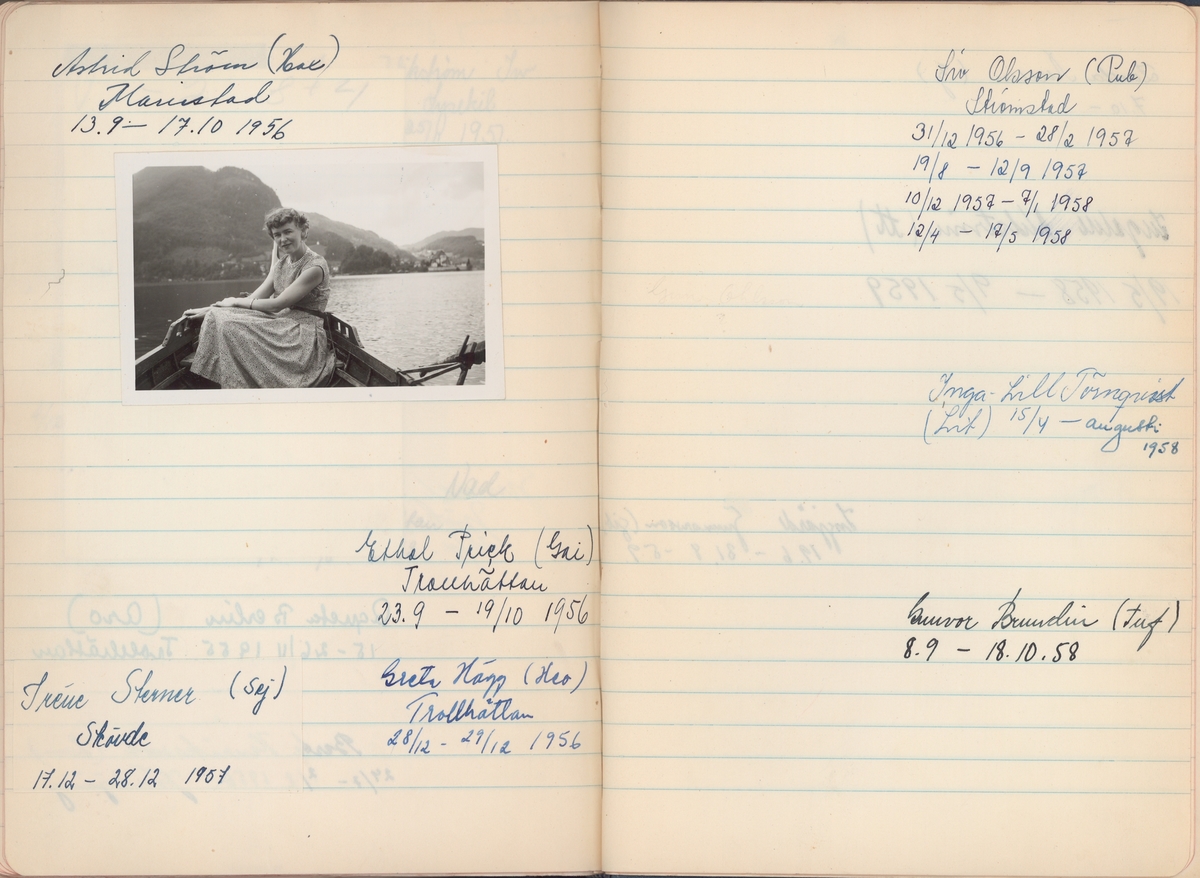 Astrid Ström (Hax)
Mariestad
13.9 — 17.10 1956
Ethel Prick (Gai)
Trollhättan
23.9 — 19/10 1956
Iréne Sterner (Sej)
Skövde
17.12 — 28.12 1957
Greta Hägg (Heo)
Trollhättan
28/12 - 29/12 1956
Siv Olsson (Pub)
Strömstad
31/12 1956 - 28/2 1957
19/8 — 12/9 1957
10/12 1957 — 7/1 1958
12/4 — 17/5 1958
Inga-Lill Törnqvist
(Lit) 15/4 — augusti
1958
Gunvor Brundin (Tuf)
8.9 — 18.10.58